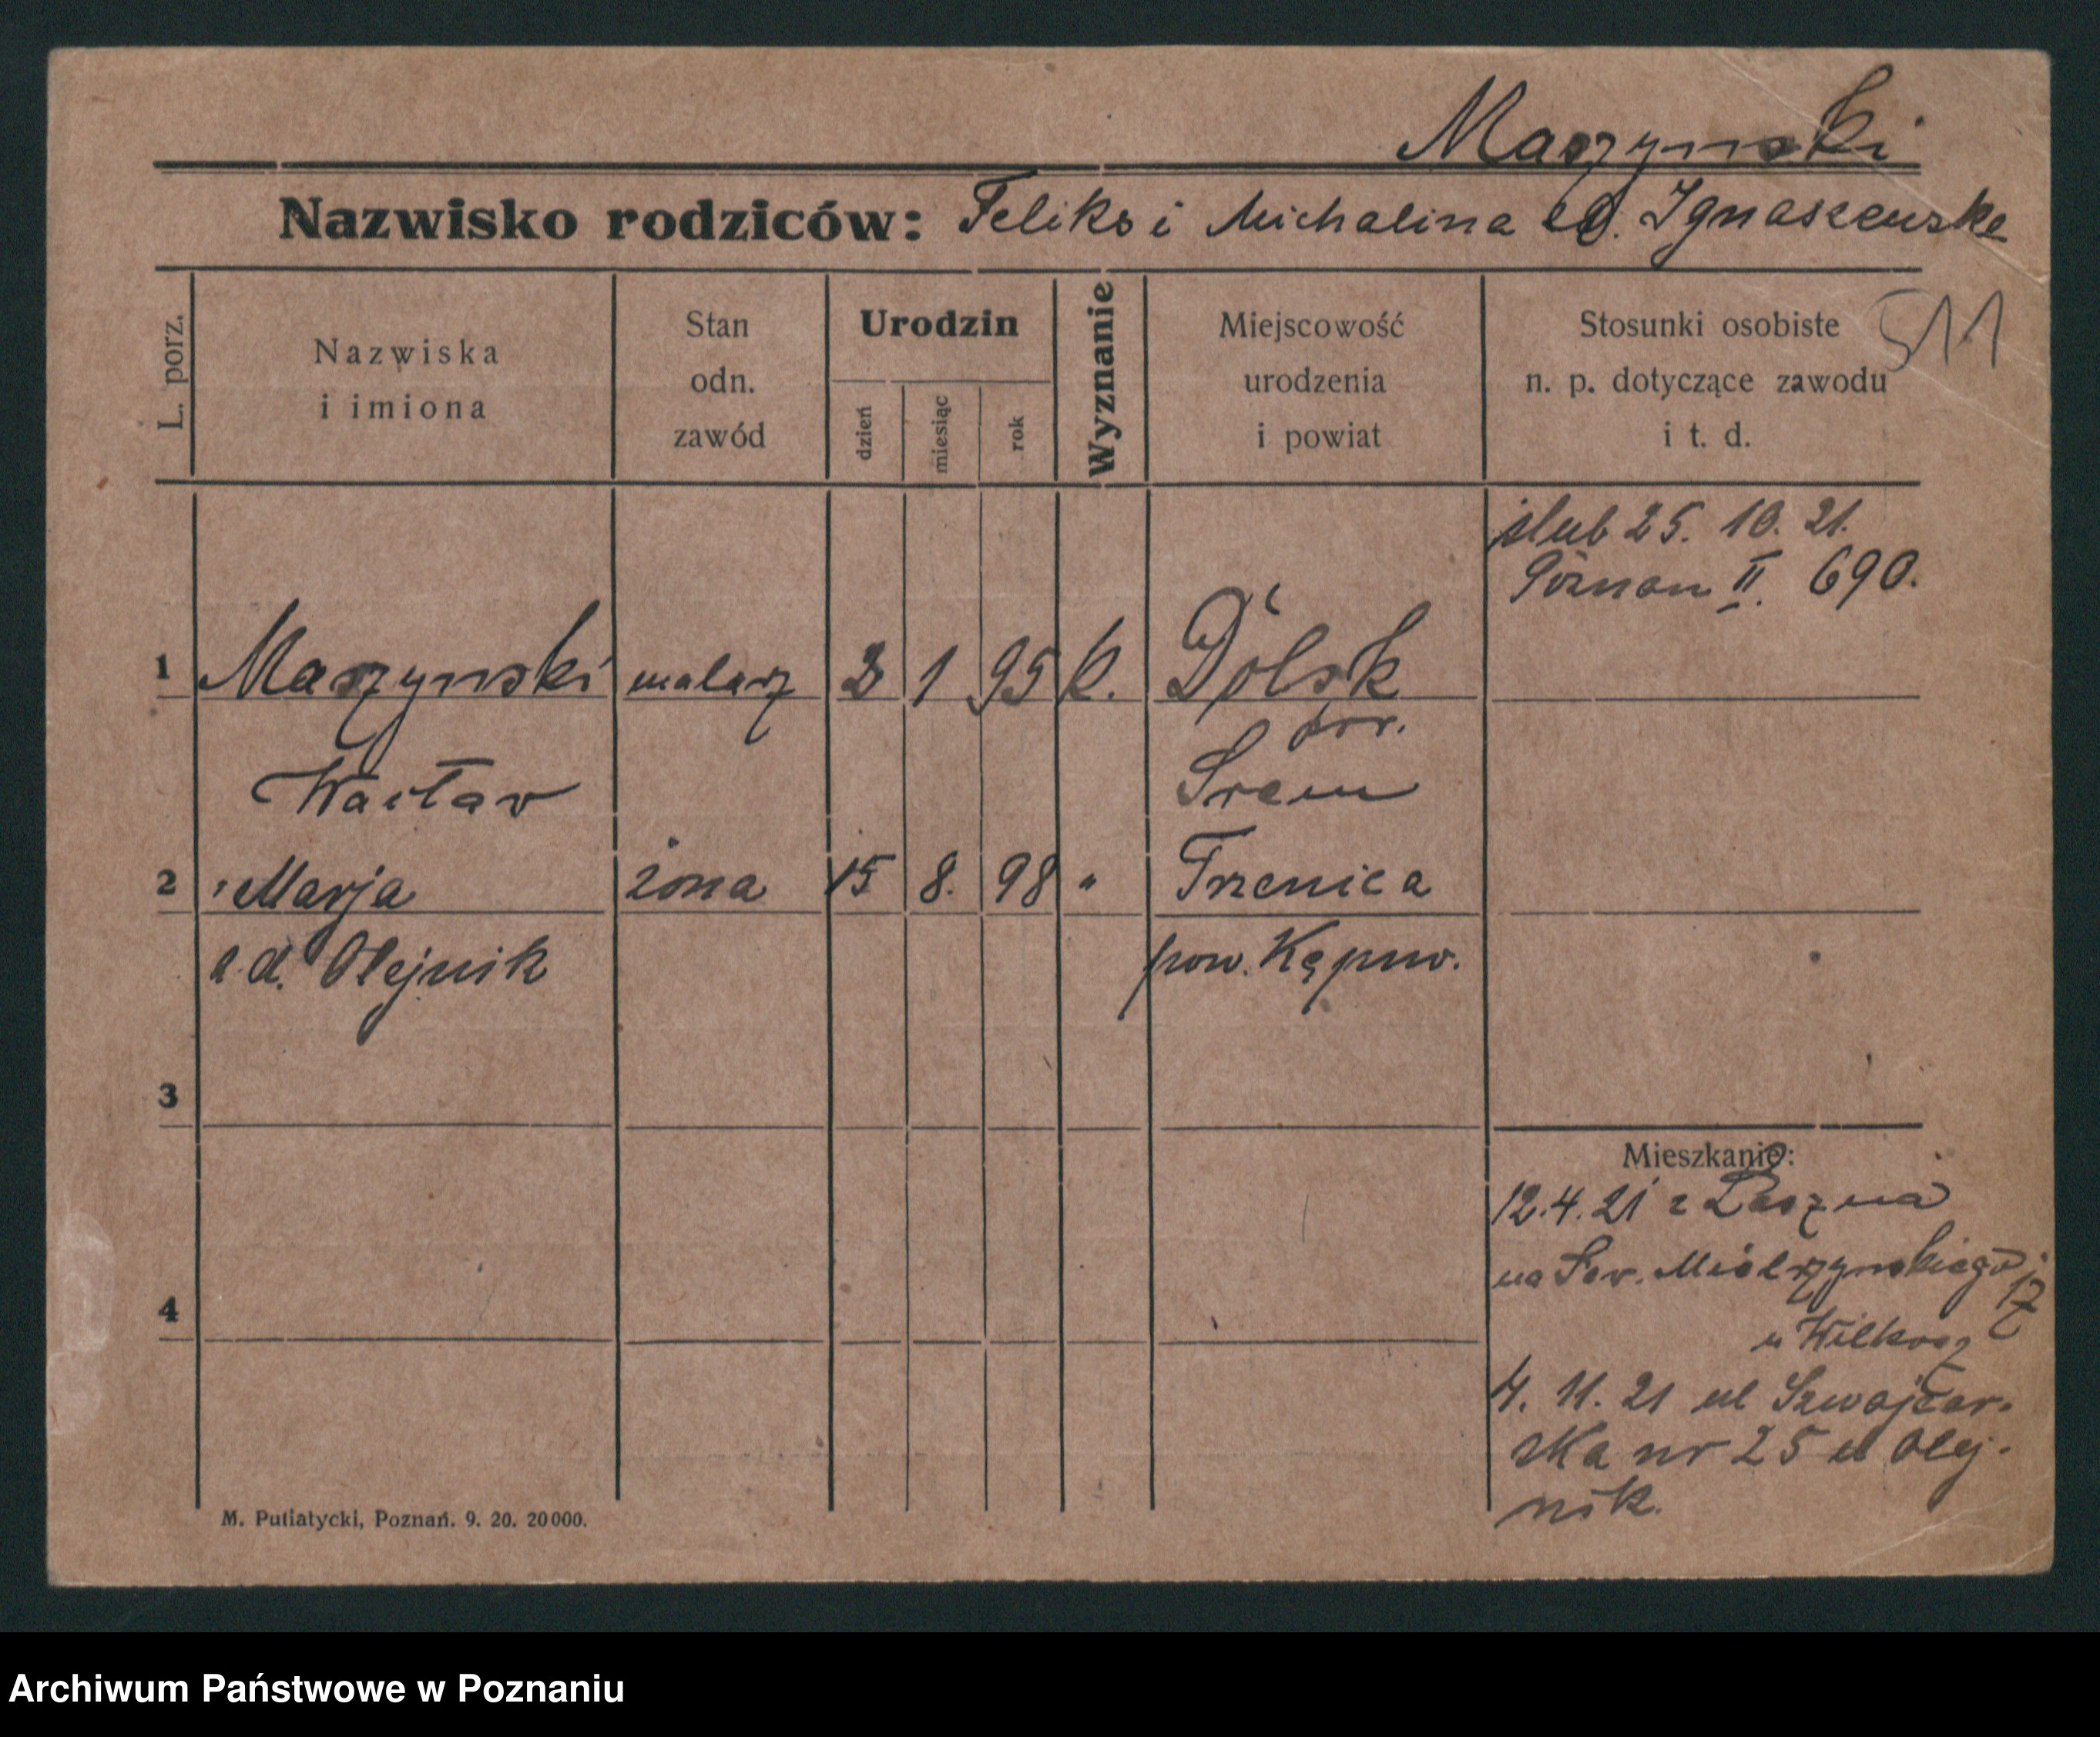 Maszynski
Nazwisko rodziców: Feliks i Michalina Ignaszewska
511
L. porz.
Nazwiska
i imiona
Stan
odn.
zawód
Urodzin
dzień
miesiąc
rok
Wyznanie
Miejscowość
urodzenia
i powiat
Stosunki osobiste
n. p. dotyczące zawodu
i t. d.
ślub 25. 10. 21.
Poznan II. 690.
1 Maszynski malarz 1 95 k. Dolsk
pow.
Wacław Srem
2 Marja żona 15 8. 98 " Trzenica
z d. Olejnik pow. Kępno.
3
Mieszkanie:
12.4.21 z Leszna
na Sew. Mielzynskiego
17
4
u Wilkosz
4. 11. 21 ul Szwajcar-
ska nr 25 u Olej-
nik.
M. Putiatycki, Poznań. 9. 20. 20000.
Archiwum Państwowe w Poznaniu